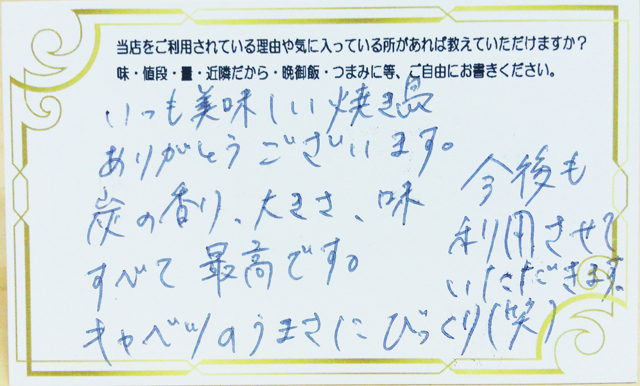 当店をご利用されている理由や気に入っている所があれば教えていただけますか?
味・値段・量・近隣だから・晩御飯・つまみに等、ご自由にお書きください。
いつも美味しい焼き鳥
ありがとうございます。
炭の香り、大きさ、味
すべて最高です。
キャベツのうまさにびっくり(笑)
今後も
利用させて
いただきます。